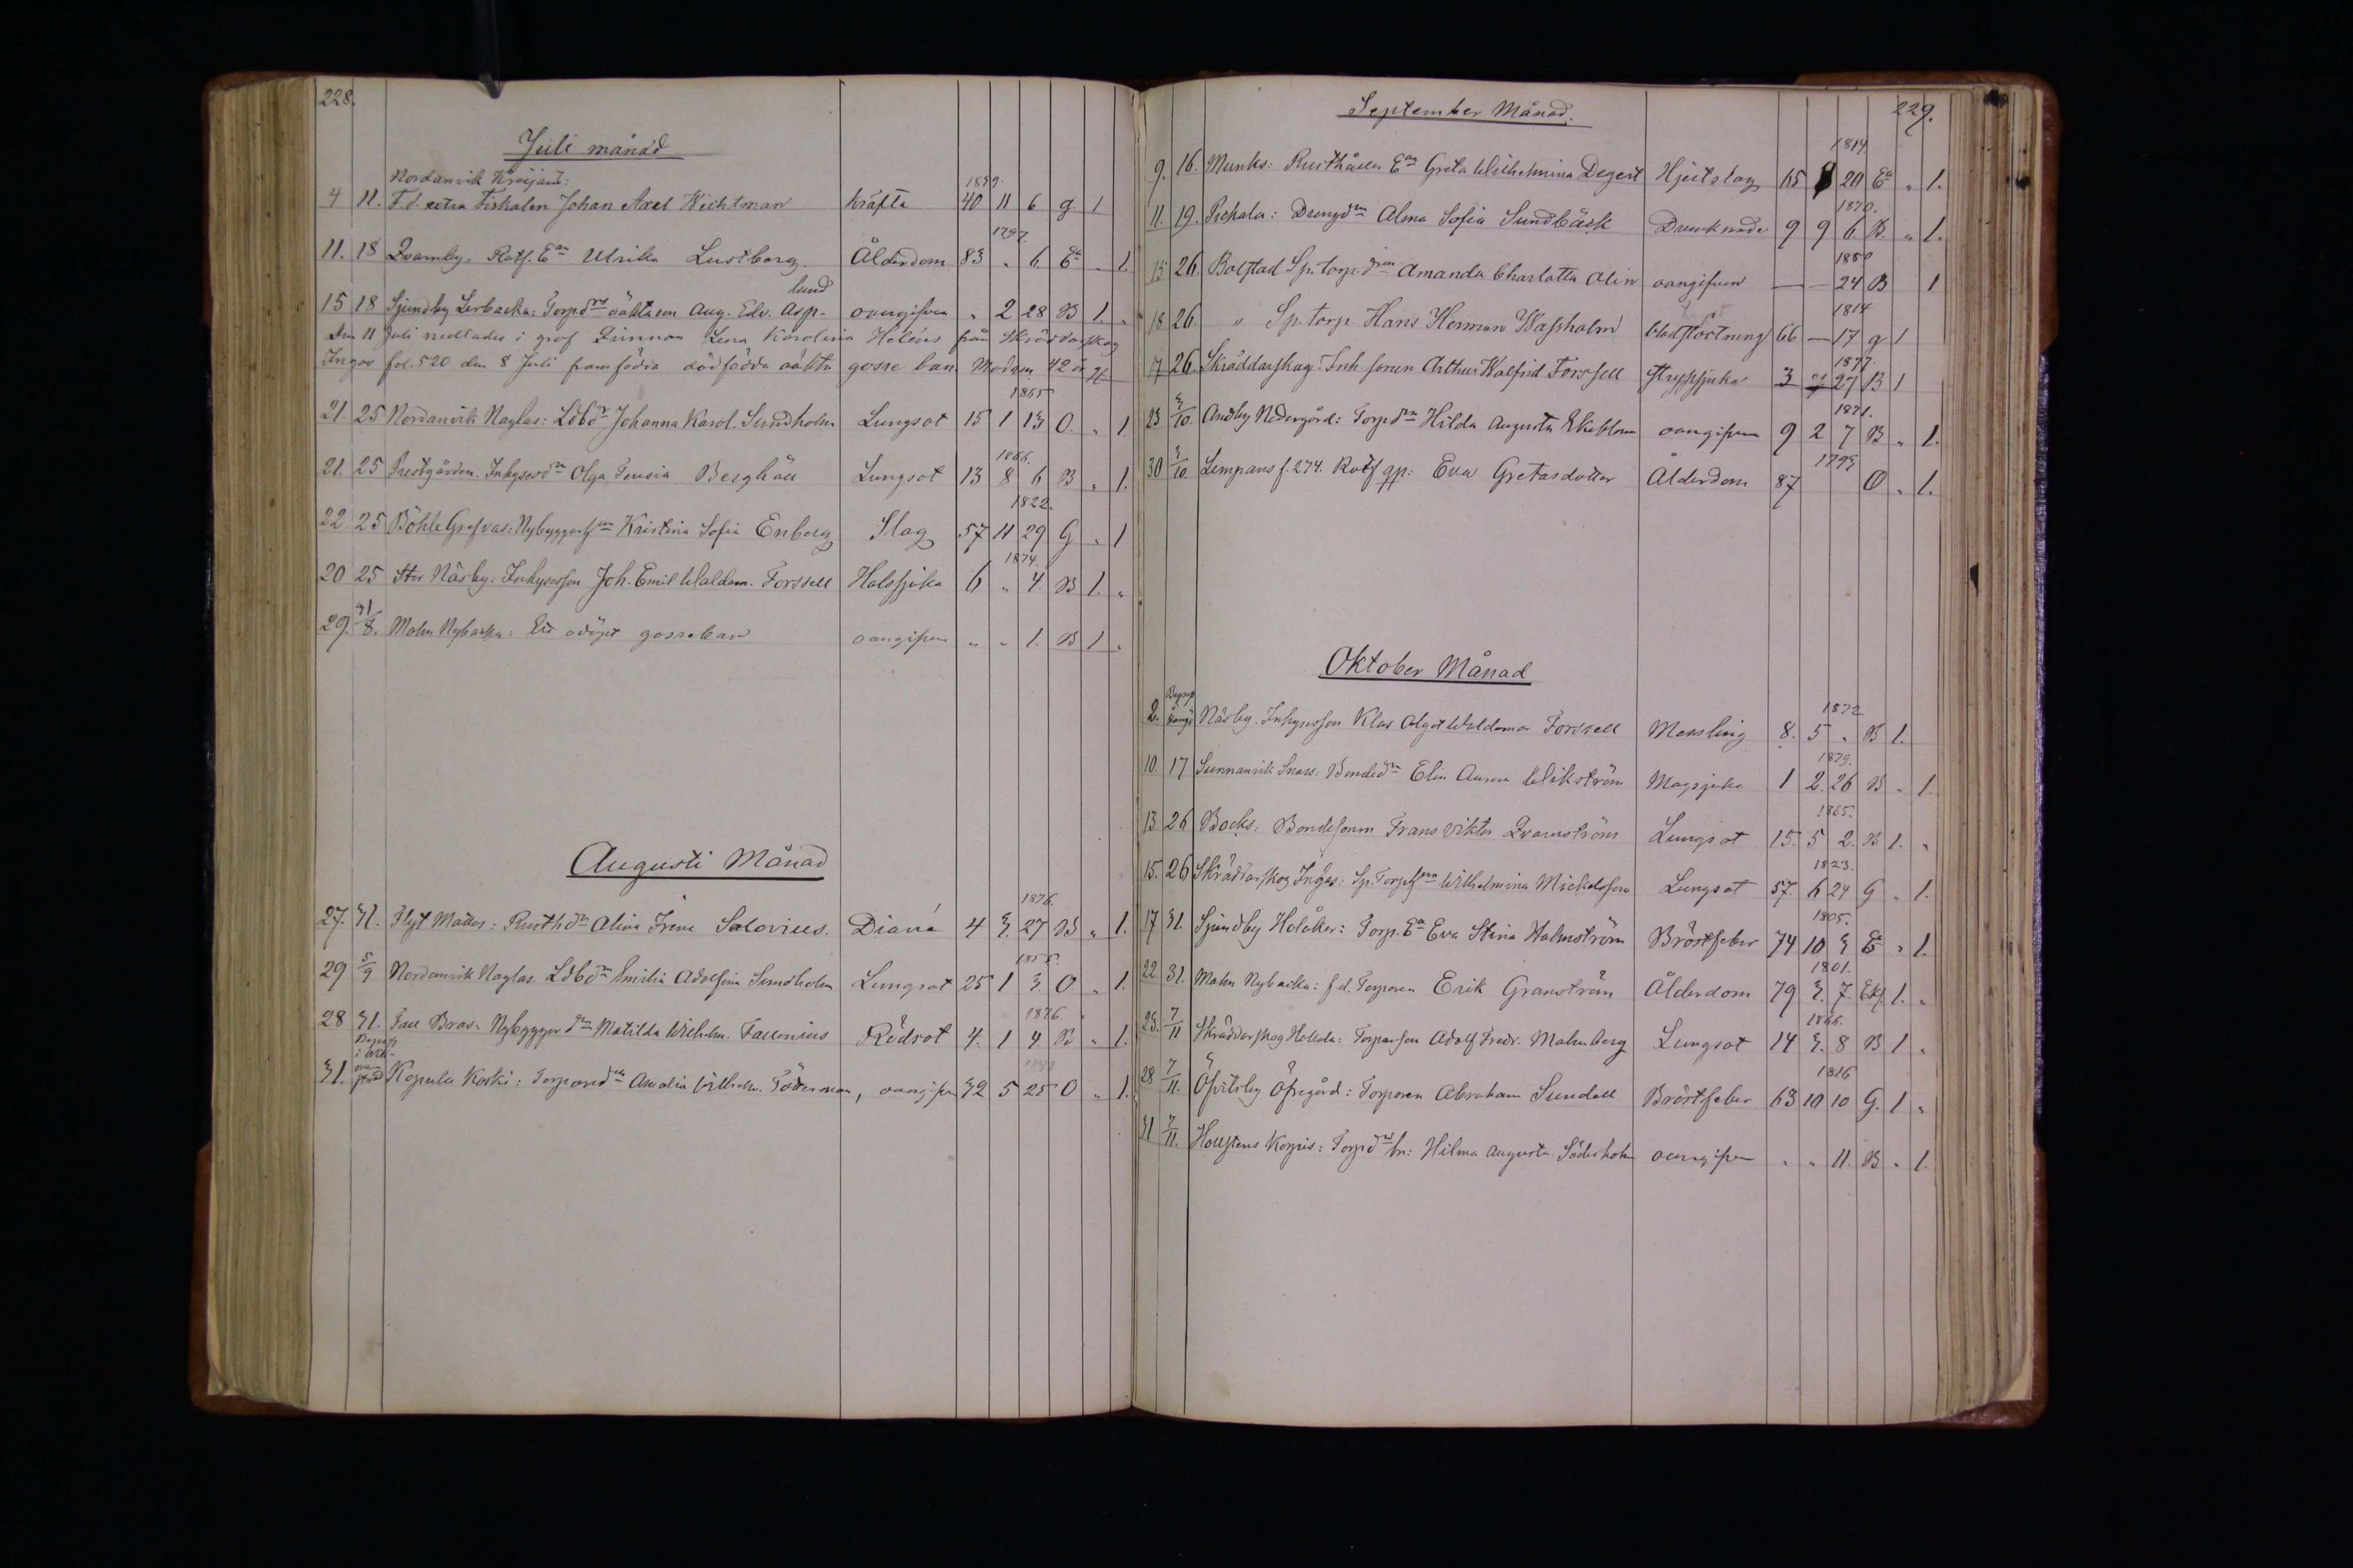 228.
Juli månad
Nordanvik Kreijans:
1839.
4 11. F.d. extra Fiskalen Johan Axel Wichtman Kräfta 40 11 6 g 1
1797.
11. 18 Qvarnby. Rotf. Ean Ulrika Lustberg. Ålderdom 83 " 6. Ea " 1.
lund
15 18 Sjundby Lerbacka: Torp.drs oäkta son Aug. Edv. Asp- oangifven " 2 28 B 1. "
Den 11 Juli nedlades i graf Qvinnan Lena Karolina Heléns från Skräddarskog
Ingos fol. 520 den 8 Juli framfödda dödfödda oäkta gosse barn Modren 42 år
1865
21. 25 Nordanvik Naglas: Ldbdr Johanna Karol. Sundholm Lungsot 15 1 13 O. " 1
1866.
21. 25 Prestgården. Inhysesdr Olga Berghäll Lungsot 13 8 6 B " 1.
1822.
22. 25 Böhle Grefvas: Kristina Sofia Enberg Slag 57 11 29 G " 1
1874.
20 25 Stor Näsby. Inhysesson Joh. Emil Waldem. Forssell Halssjuka 6 " 4. B 1. "
29. 31/8. Malm Nybacka: Ett odöpt gossebarn oangifven " " 1. B 1 "
Augusti Månad
1876.
27. 31. Flyt Mattas: Rusth.dr Alina Irene Salovius. Diarré 4 3. 27 B " 1.
1855.
29 5/9 Nordanvik Naglas. Ldbdr Emilia Adolfina Sundholm Lungsot 25 1 3. O " 1.
1876
28 31. Bras. Nybygger dr Matilda Wilhelm. Fallenius Rödsot 4. 1 4. B " 1.
Begrof
i
31. Kopula Koski: Torparedn Amalia Wilhelm. Töderman, oangifven 32 5 25 O " 1.
September Månad.
229.
1814
9. 16. Munks: Rusthålls Ean Greta Wilhelmina Degert Hjertslag 65 8 20 Ea " 1.
1870.
11. 19. Pickala: Drengdrn Alma Sofia Sundbäck Drunknade 9 9 6. B. " 1.
1880
15 26. Bolstad Sp. torp. drn Amanda Charlotta Alin oangifven — — 24 B 1
1814
18 26. " Sp. torp. Hans Herman Wassholm blodstörtning 66 — 17 g 1
1877.
17 26. Skräddarskog: Inh. sonen Arthur Walfrid Forssell strypsjuka 3 27 B 1
1871.
23 3/10. Andby Nedergård: Torp drn Hilda Augusta Ekeblom oangifven 9 2 7 B " 1.
1793
30 3/10. Lempans f. 274. Rotf qp: Eva Gretasdotter Ålderdom 87 O " 1.
Oktober Månad
1872
2. Näsby. Inhysesson Klas Algot Waldemar Forssell Messling 8. 5 " B 1.
1879.
10. 17 Sunnanvik Snars. Bondedr Elin Aurora Wikström Magsjuka 1 2. 26 B " 1.
1865.
13 26 Bocks. Bondesonen Frans Viktor Qvarnström Lungsot 15. 5 2. B 1. "
1823.
15. 26 Skräddarskog Ingos: Wilhelmina Mickelsson Lungsot 57. 6 24 G " 1.
1805.
17 31. Sjundby Holåker: Torp. Ea Eva Stina Holmström Bröstfeber 74 10 3 Ea " 1.
1801.
22. 31. Malm Nybacka: f.d. Torparen Erik Granström Ålderdom 79 3. 7. Ekl. 1. "
1866.
23. 7/11 Skräddarskog: Torparson Adolf Fredr. Malmberg Lungsot 14 3. 8 B 1 "
1816
28 7/11. Öfvitsby Öfregård: Torparen Abraham Sundell Bröstfeber 63 10 10 G. 1 "
31 7/11. Korpis: Torpdrs bn: Hilma Augusta Söderholm oangifven " " 11. B " 1.